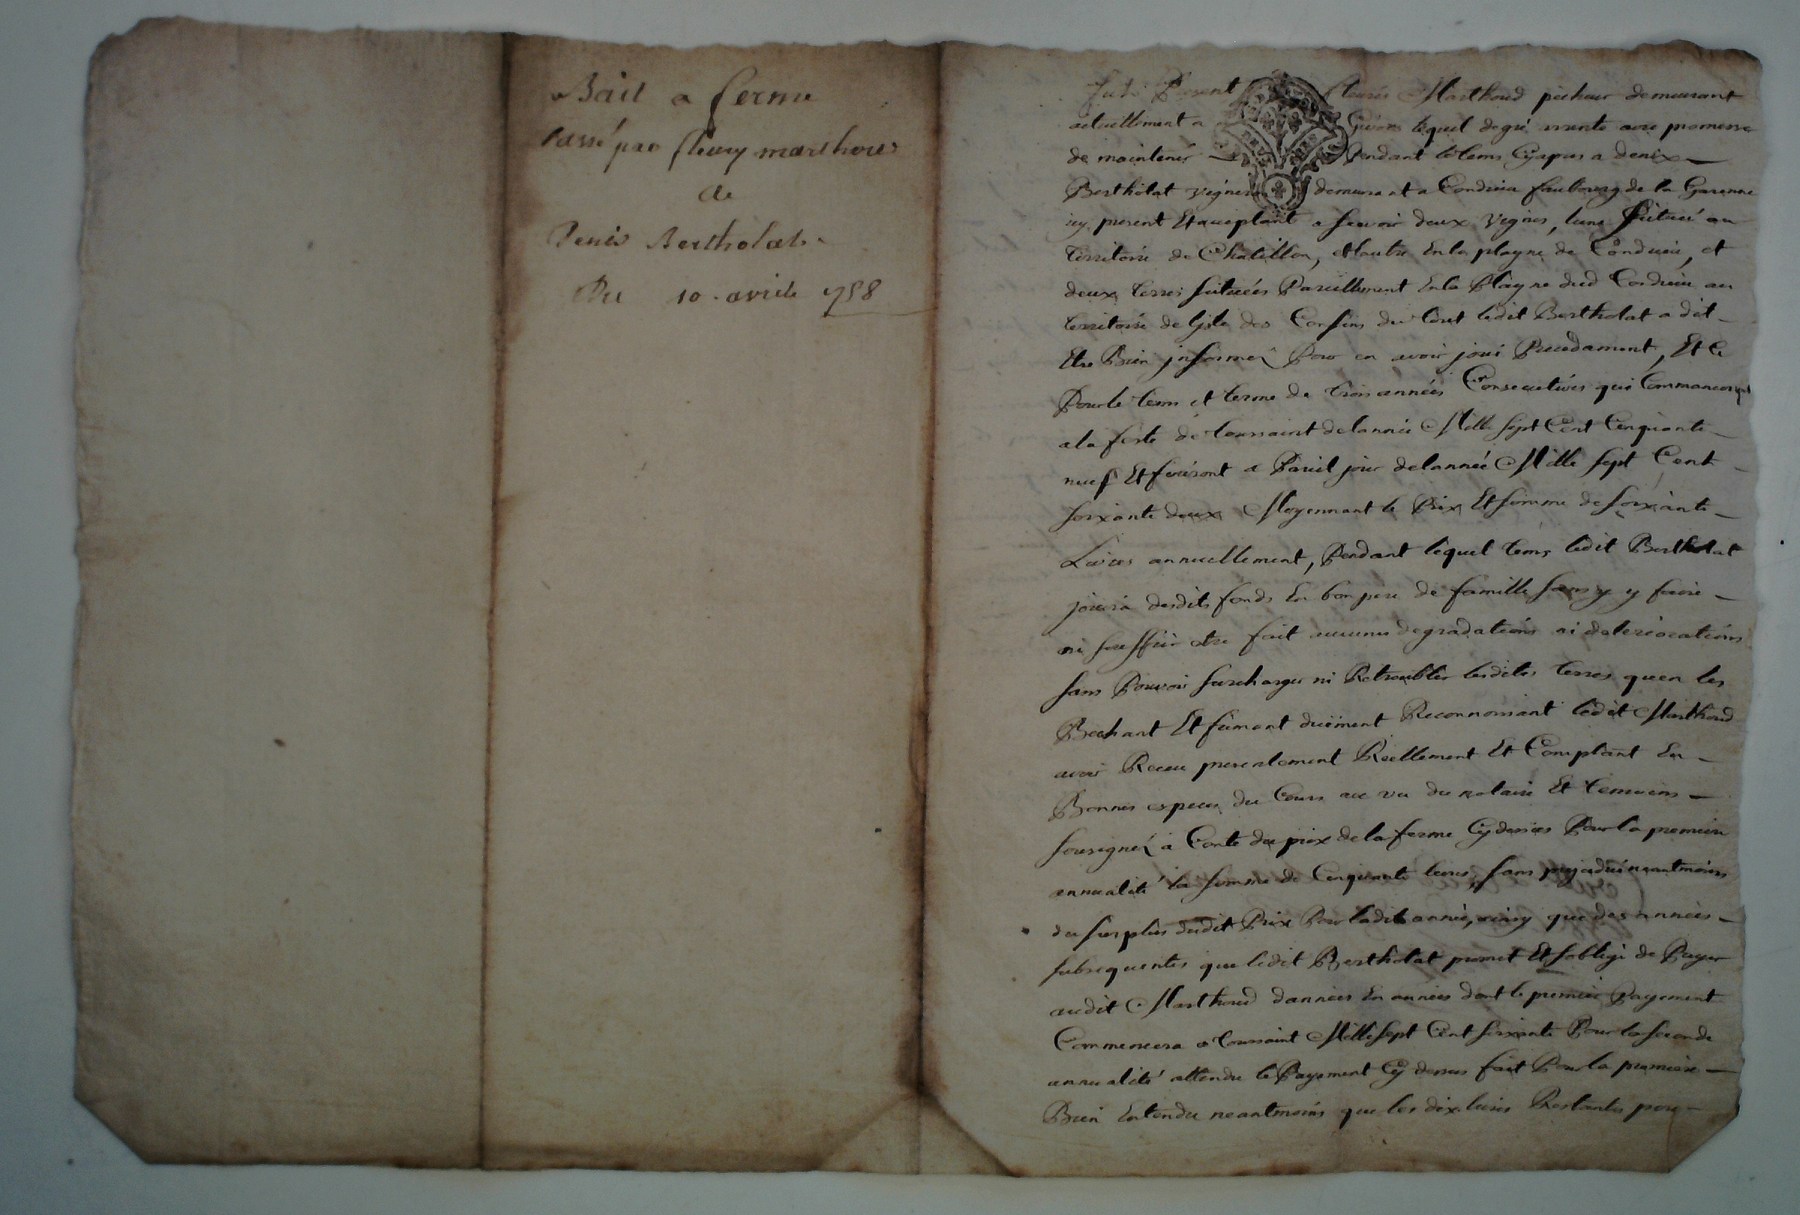 Bail a ferme
Passé par fleury marthoud
de
Denis Bertholat
Du 10 avril 1758
fut Present fleurie Marthoud pecheur demeurant
actuellement a Givors lequel de gré avec promesse
de maintenir Pendant le tems Cyapres a denix
Bertholat vigneron demeurant a Condrieu faubourg de la Garenne
icy present Et aceptant a scavoir deux vignes, lune Scituée au
Territoire de Chatillon, et lautre En la playne de Condrieu, et
deux terres scituées Pareillement En la Playne dud Condrieu au
territoire de Lisle des Confins du tout ledit Bertholat a dit
Etre Bien informé Pour en avoir joui Precedament, Et Ce
Pour le tems et terme de trois années Consecutives qui Commanceront
a la feste de toussaint de lannée Mille sept Cent Cinquante
neuf Et finiront a Pareil jour de lannée Mille sept Cent
soixante deux Moyennant le Prix Et somme de soixante
Livres annuellement, Pendant lequel tems ledit Bertholat
jouira desdits fonds En bon pere de famille sans y faire
ni souffrir etre fait aucunes degradations ni deteriorations
sans Pouvoir surcharger ni Retroubler lesdites terres quen les
Bechant Et fumant duëment Reconnoissant ledit Marthoud
avoir Receu presentement Réellement Et Comptant En
Bonnes especes du Cours au vu du notaire Et temoins
sousignéz a Conte du prix de la ferme Cy dessus Pour la premiere
annualité la somme de Cinquante livres, sans prejudice neantmoins
du surplus dudit Prix Pour ladite année, ainsy que des années
subsequentes que ledit Bertholat promet Et soblige de Payer
audit Marthoud dannées En années dont le premier Payement
Commencera a toussaint Mille sept Cent soixante Pour la seconde
annualité attendu le Payement Cy dessus fait Pour la premiere
Bien Entendu neantmoins que les dix livres Restantes pour